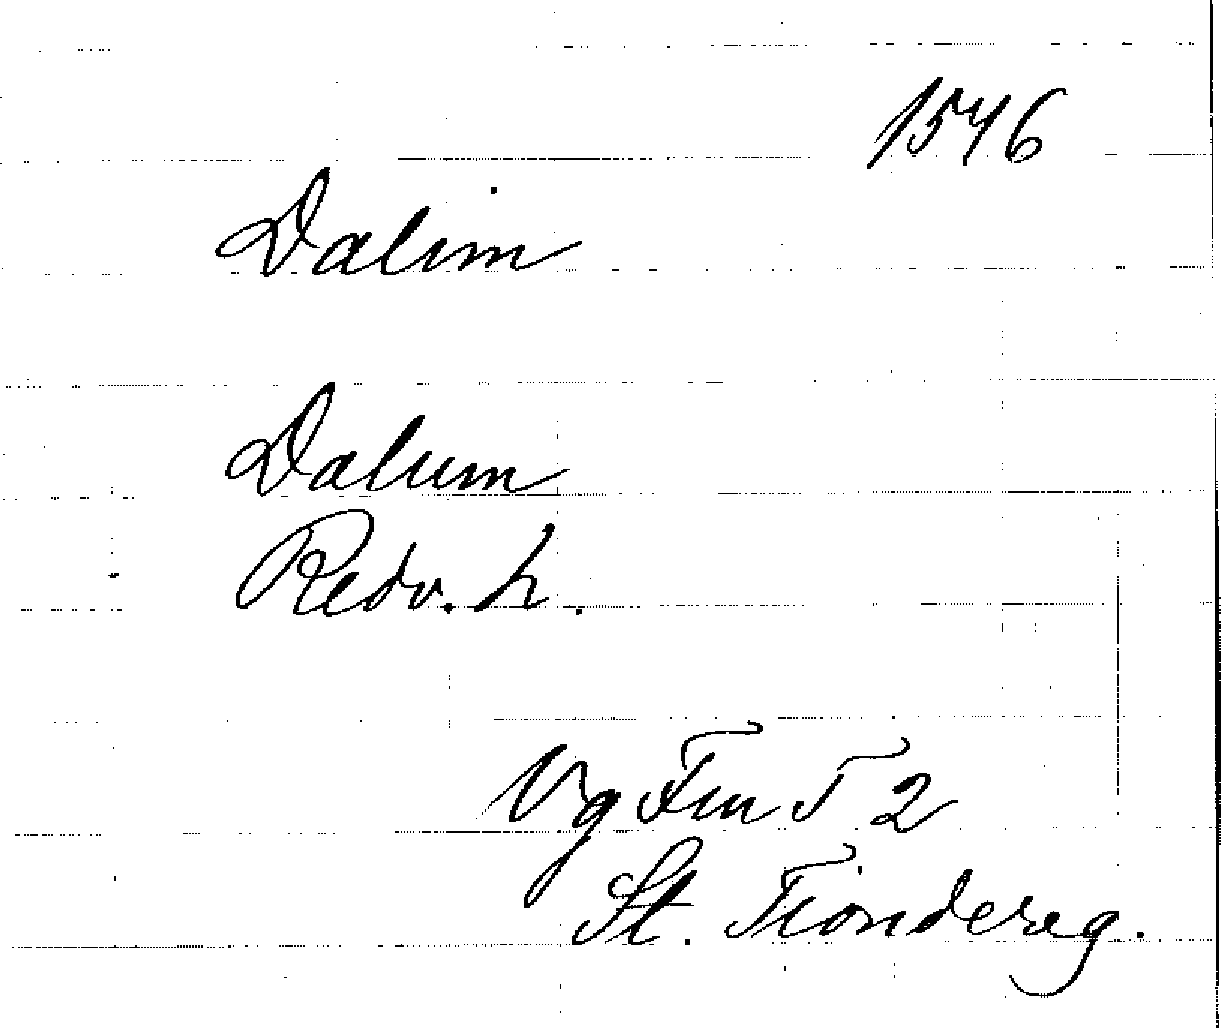 1546
Dalim
Dalum
Redv. h.
Vg Fru T 2
St. Tiondereg.